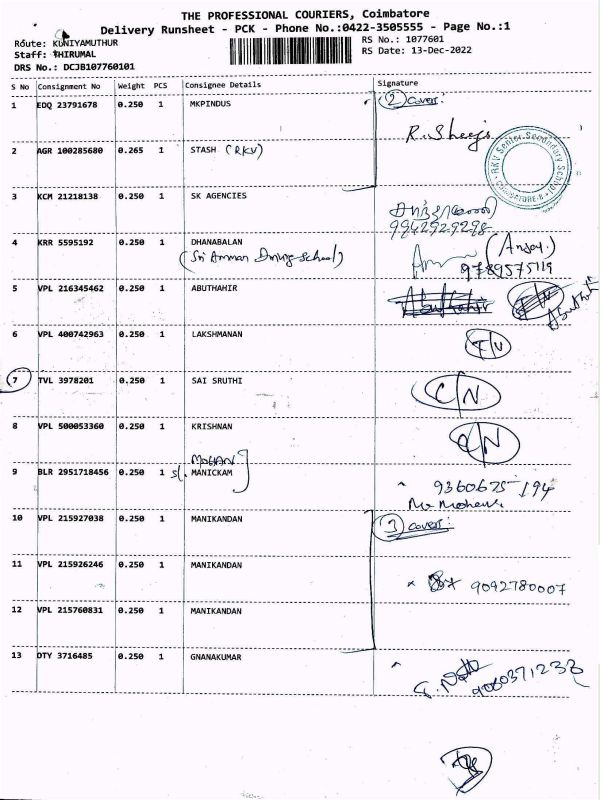 THE PROFESSIONAL COURIERS, Coimbatore
Delivery Runsheet - PCK - Phone No.:0422-3505555 - Page No.:1
Route: KUNIYAMUTHUR
RS No.: 1077601
Staff: THIRUMAL
RS Date: 13-Dec-2022
DRS No.: DCJB107760101
S No Consignment No Weight PCS Consignee Details Signature
1 EDQ 23791678 0.250 1 MKPINDUS (2) Covers:
R. Sheeja
2 AGR 100285680 0.265 1 STASH (RKV)
RKV Senior Secondary School
COIMBATORE-8
3 KCM 21218138 0.250 1 SK AGENCIES
9942929298
4 KRR 5595192 0.250 1 DHANABALAN
(Sri Amman Driving School) 9789575119
5 VPL 216345462 0.250 1 ABUTHAHIR Abuthahir
6 VPL 400742963 0.250 1 LAKSHMANAN
7 TVL 3978201 0.250 1 SAI SRUTHI C/N
8 VPL 500053360 0.250 1 KRISHNAN
MOHAN
9 BLR 2951718456 0.250 1 S/. MANICKAM 9360675194
10 VPL 215927038 0.250 1 MANIKANDAN (3) covers:
11 VPL 215926246 0.250 1 MANIKANDAN 9092780007
12 VPL 215760831 0.250 1 MANIKANDAN
13 DTY 3716485 0.250 1 GNANAKUMAR